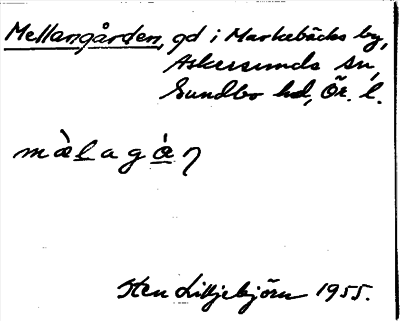 Mellangården, gd i Markebäcks by,
Askersunds sn,
Sundbo hd, Ör. l.
mὰlagȧ̀ŋ
Sten Lilljebjörn 1955.